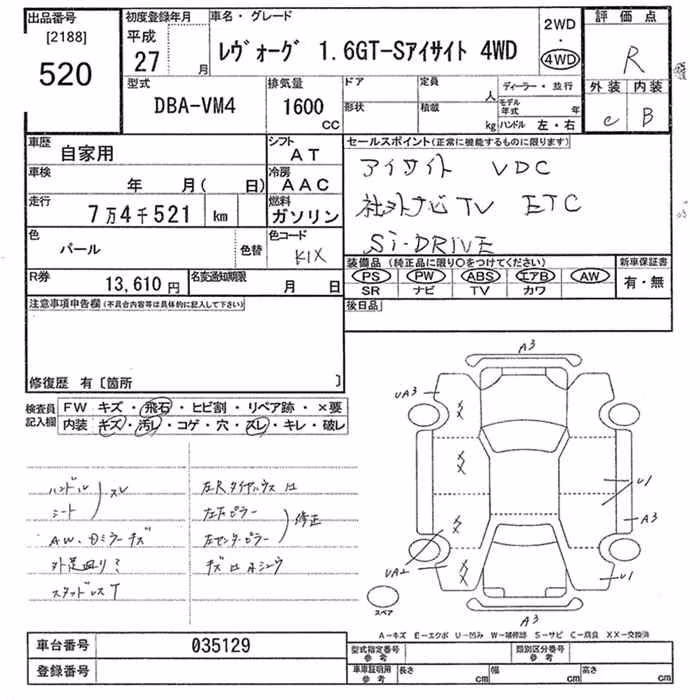 出品番号
[2188]
520
初度登録年月
平成
27 月
車名・グレード
レヴォーグ 1.6GT-Sアイサイト 4WD
2WD
・
4WD
評価点
R
外装 内装
C B
型式
DBA-VM4
排気量
1600
CC
ドア
形状
定員
人
積載
kg
ディーラー・並行
モデル年式 年
ハンドル 左・右
車歴
自家用
シフト
AT
車検
年 月( 日)
冷房
AAC
走行
7万4千521 km
燃料
ガソリン
色
パール
色替
色コード
K1X
R券
13,610円
名変通知期限
月 日
セールスポイント(正常に機能するものに限ります)
アイサイト VDC
社外ナビ TV ETC
Si-DRIVE
装備品(純正品に限り○をつけてください)
PS PW ABS エアB AW
SR ナビ TV カワ
新車保証書
有・無
後日品
注意事項申告欄(不具合内容等は具体的に記入して下さい)
修復歴 有〔箇所 〕
検査員
記入欄
FW キズ・飛石・ヒビ割・リペア跡・×要
内装 キズ・汚レ・コゲ・穴・スレ・キレ・破レ
ハンドル
シート
スレ
AW、Dミラーキズ
外足廻り?
スタッドレスT
左Rタイヤハウスは
左Fピラー
左センターピラー
修正
キズはAシュウ
A3
UA3
XX
XX
XX
XX
U1
A3
UA2
U1
A3
スペア
A-キズ E-エクボ U-凹み W-補修跡 S-サビ C-腐食 XX-交換済
車台番号 035129
登録番号
型式指定番号
参考
類別区分番号
参考
車庫証明用
参考
長さ cm
幅 cm
高さ cm